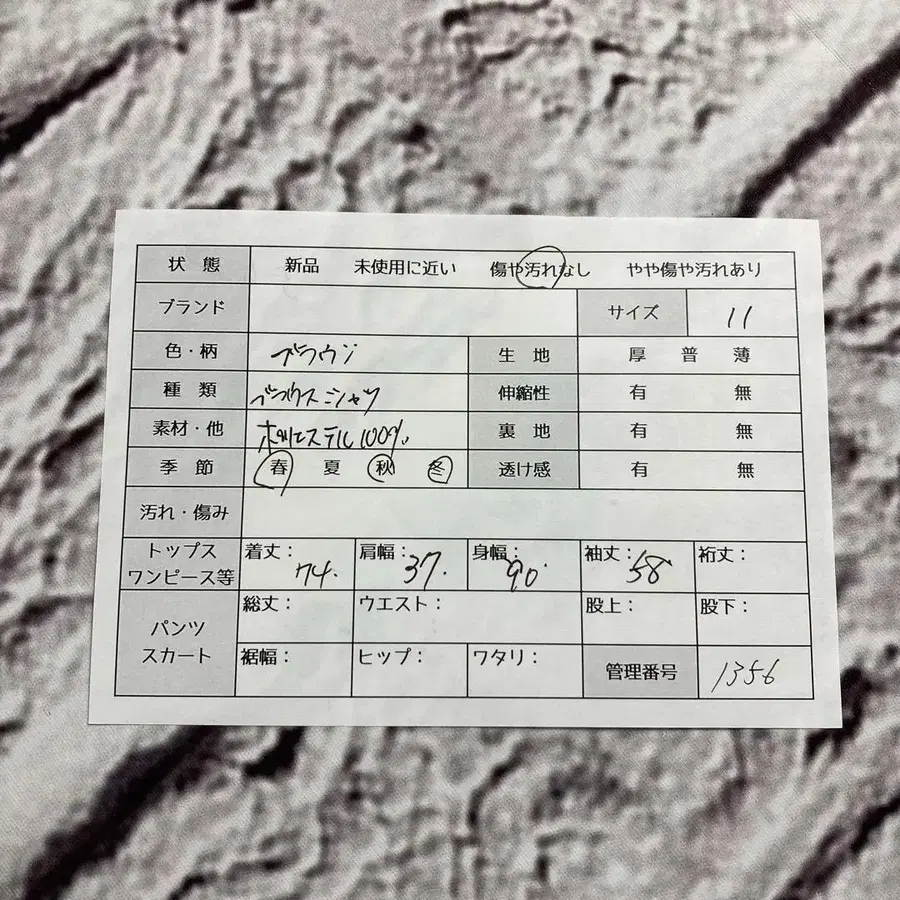 状態 新品 未使用に近い 傷や汚れなし やや傷や汚れあり
ブランド サイズ 11
色・柄 ブラウン 生地 厚 普 薄
種類 ブラウスシャツ 伸縮性 有 無
素材・他 ポリエステル100% 裏地 有 無
季節 春 夏 秋 冬 透け感 有 無
汚れ・傷み
トップス
ワンピース等 着丈: 74. 肩幅: 37. 身幅: 90. 袖丈: 58 裄丈:
パンツ
スカート 総丈: ウエスト: 股上: 股下:
裾幅: ヒップ: ワタリ: 管理番号 1356